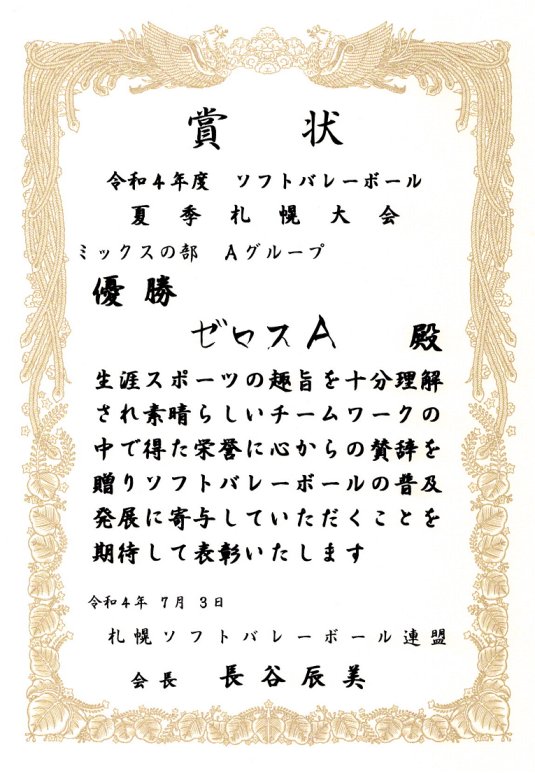 賞状
令和4年度 ソフトバレーボール
夏季札幌大会
ミックスの部 Aグループ
優勝
ゼロスA 殿
生涯スポーツの趣旨を十分理解
され素晴らしいチームワークの
中で得た栄誉に心からの賛辞を
贈りソフトバレーボールの普及
発展に寄与していただくことを
期待して表彰いたします
令和4年 7月 3日
札幌ソフトバレーボール連盟
会長 長谷辰美